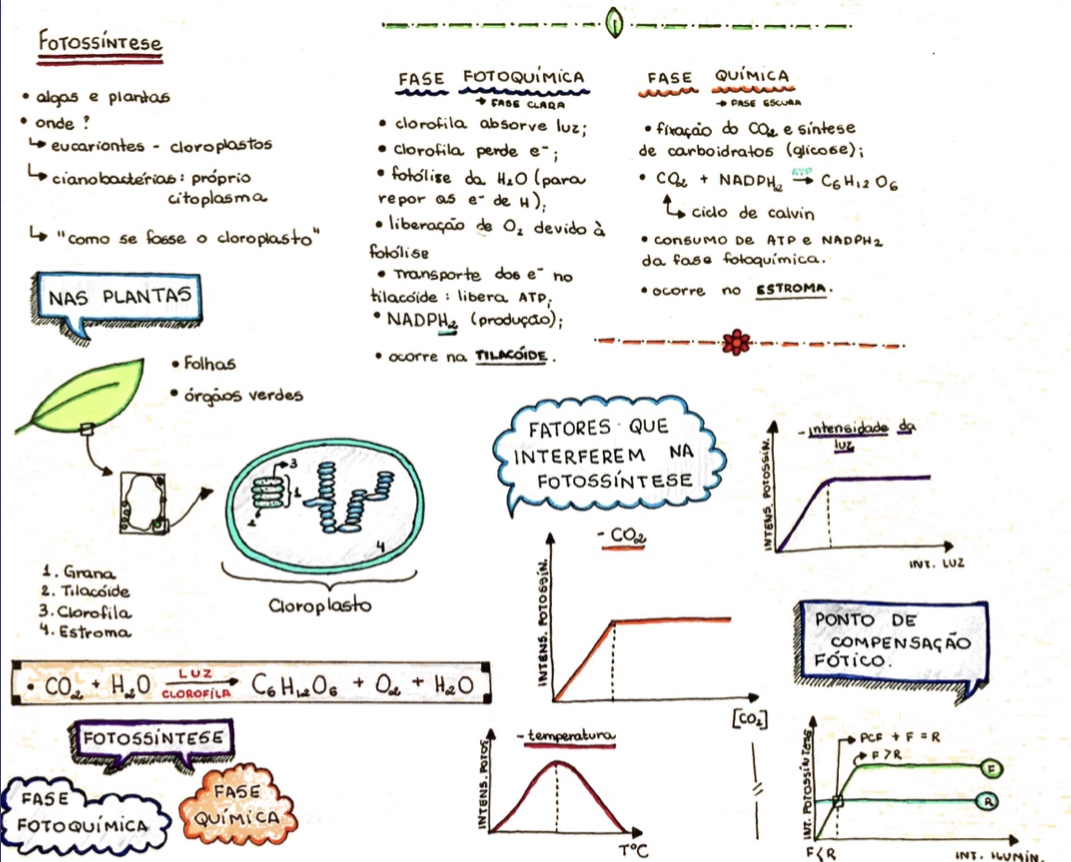 FOTOSSÍNTESE
• algas e plantas
• onde?
↳ eucariontes - cloroplastos
↳ cianobactérias: próprio
citoplasma
↳ "como se fosse o cloroplasto"
NAS PLANTAS
• Folhas
• órgãos verdes
3
1
2
4
Cloroplasto
1. Grana
2. Tilacóide
3. Clorofila
4. Estroma
• CO2 + H2O LUZ CLOROFILA → C6H12O6 + O2 + H2O
FOTOSSÍNTESE
FASE
FOTOQUÍMICA
FASE
QUÍMICA
FASE FOTOQUÍMICA
→ FASE CLARA
• clorofila absorve luz;
• clorofila perde e⁻;
• fotólise da H2O (para
repor os e⁻ de H);
• liberação de O2 devido à
fotólise
• Transporte dos e⁻ no
tilacóide: libera ATP;
• NADPH2 (produção);
• ocorre na TILACÓIDE.
FASE QUÍMICA
→ FASE ESCURA
• fixação do CO2 e síntese
de carboidratos (glicose);
• CO2 + NADPH2 ATP → C6H12O6
↳ ciclo de calvin
• CONSUMO DE ATP e NADPH2
da fase fotoquímica.
• ocorre no ESTROMA.
FATORES QUE
INTERFEREM NA
FOTOSSÍNTESE
- intensidade da
luz
INTENS. FOTOSSÍN.
INT. LUZ
- CO2
INTENS. FOTOSSÍN.
[CO2]
- temperatura
INTENS. FOTOS
T°C
PONTO DE
COMPENSAÇÃO
FÓTICO.
INT. FOTOSSÍNTESE
→ PCF + F = R
→ F>R
F
R
F<R
INT. ILUMIN.